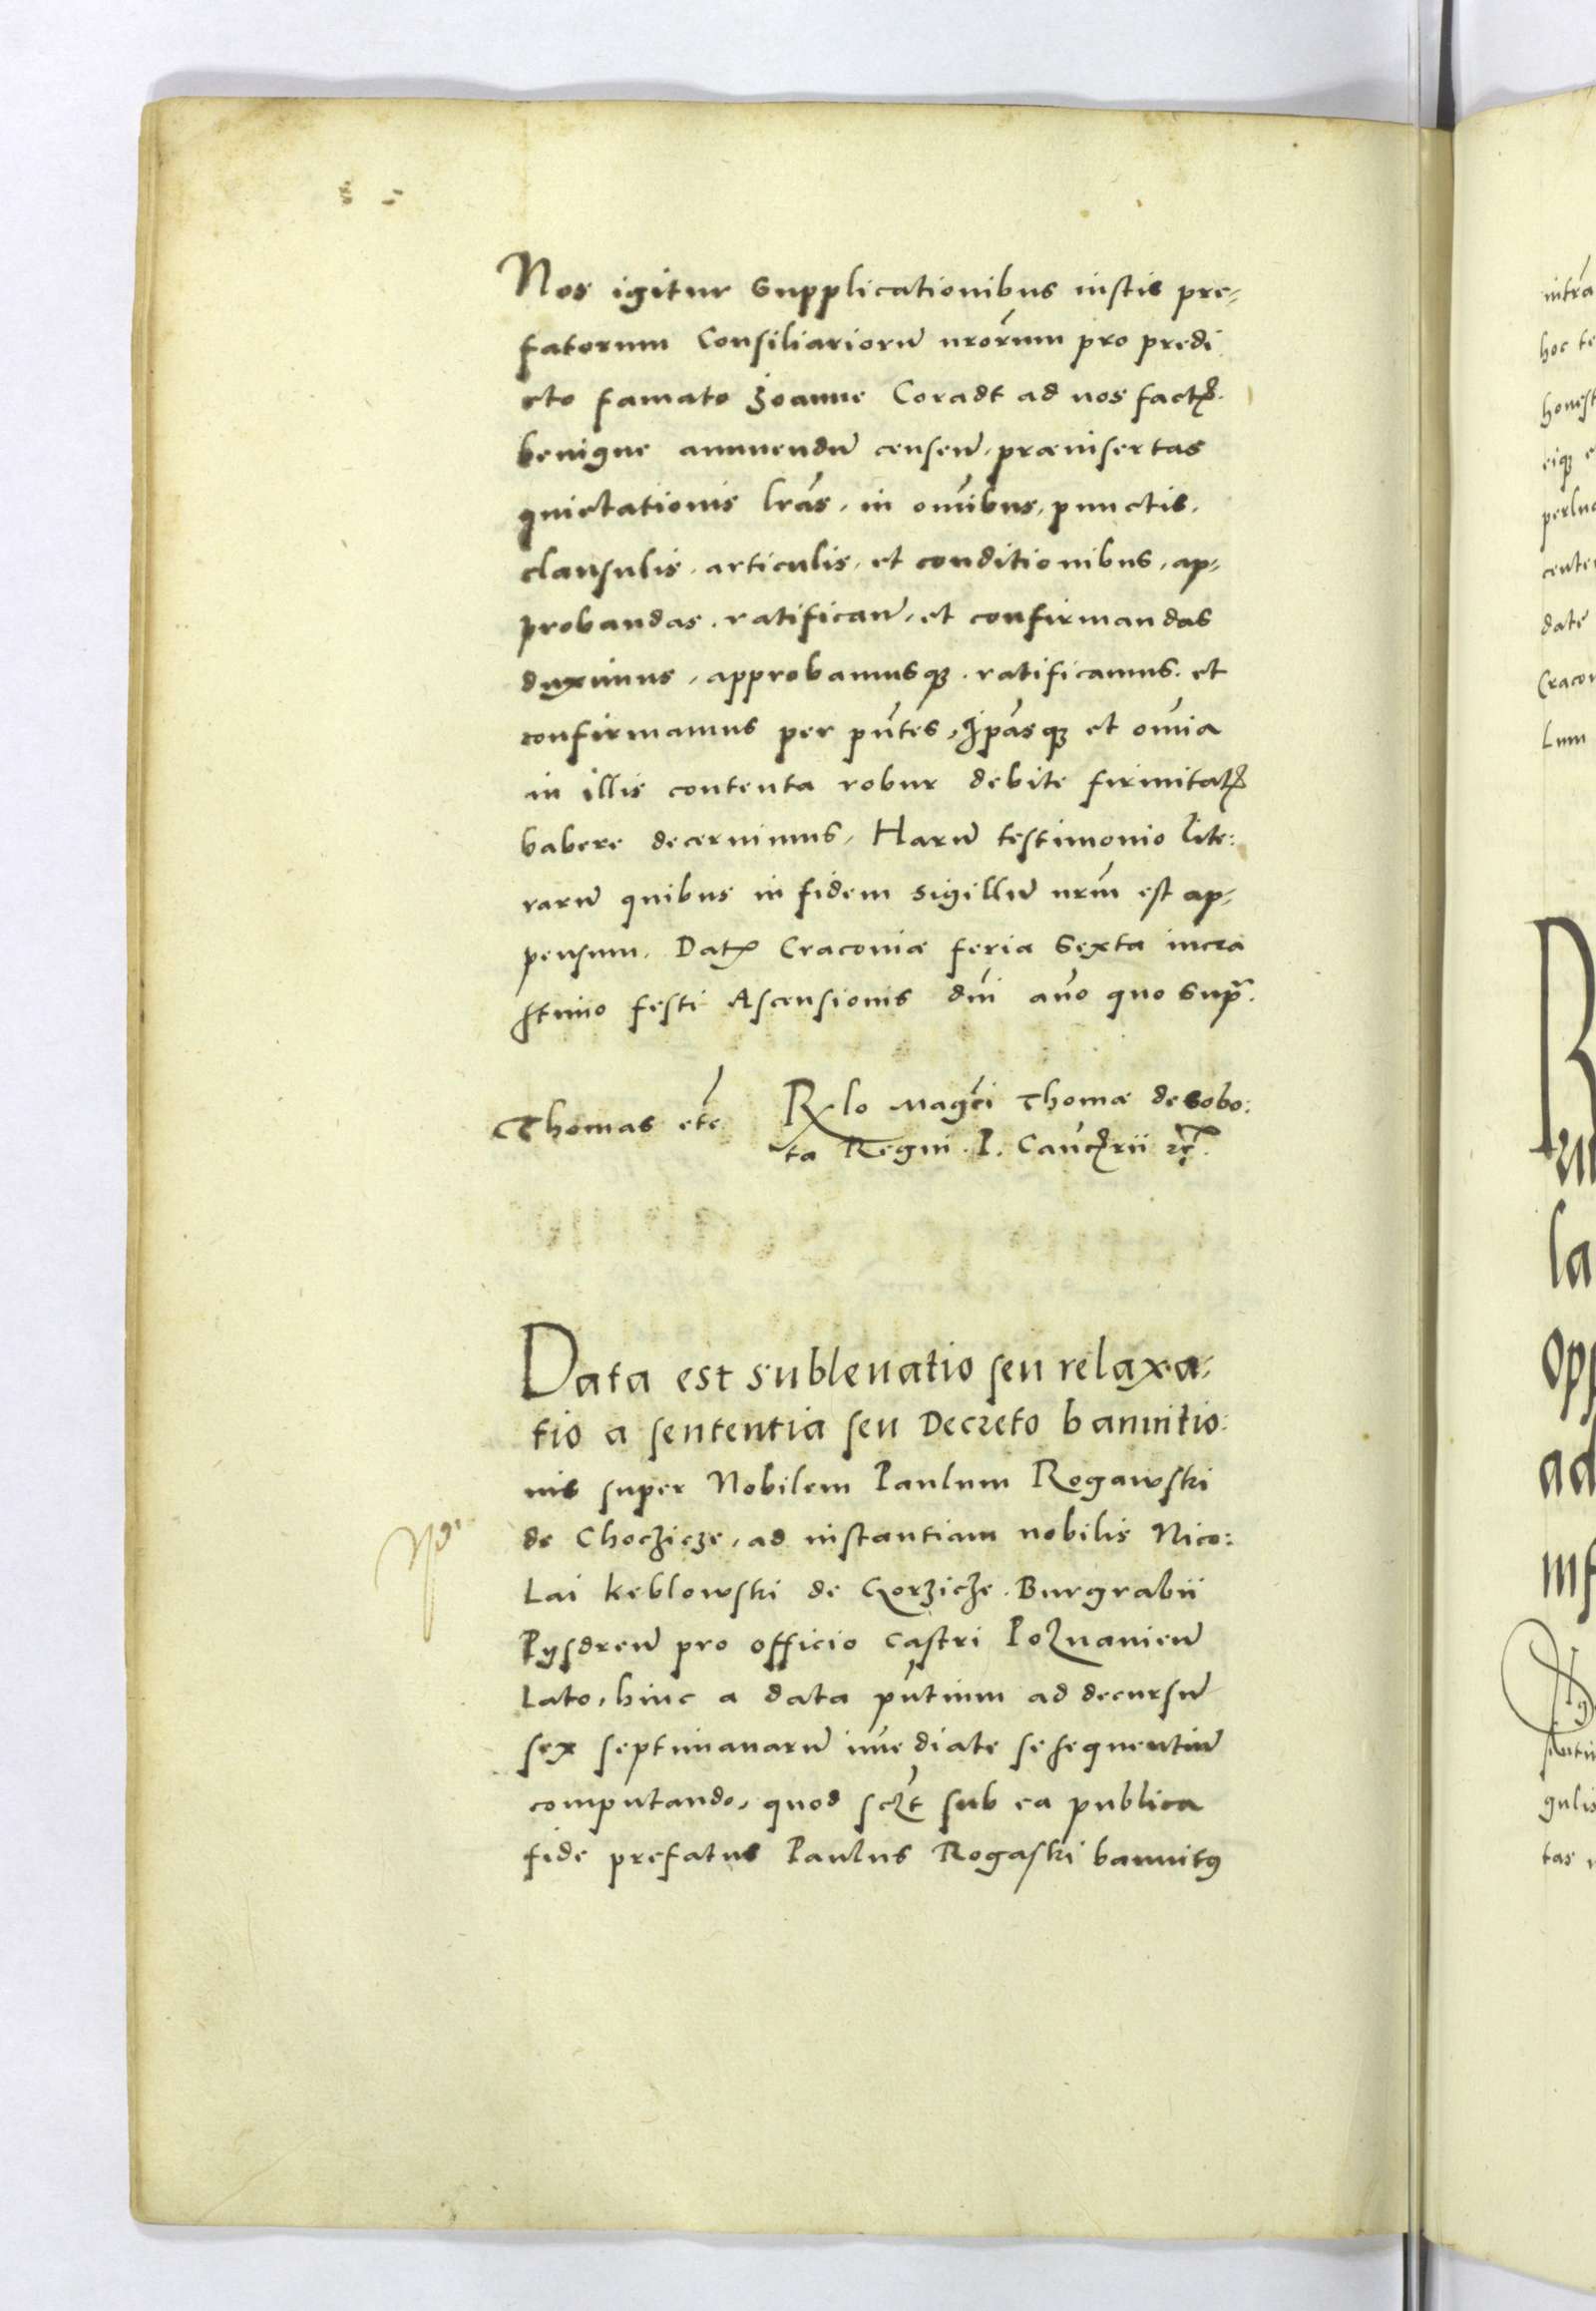 Nos igitur Supplicationibus iustis pre-
fatorum Consiliariorũ nrõrum pro predi
cto famato Joanne Coradt ad nos factꝭ.
benigne annuendũ censeñ, præinsertas
quietationis lrãs, in oĩnibus, punctis,
clausulis, articulis, et conditionibus, ap-
probandas, ratificañ, et confirmandas
duximus, approbamusqꝫ, ratificamus, et
confirmamus per pñtes, Ip̃asqꝫ et oĩnia
in illis contenta robur debite firmitatꝭ
habere decernimus, Harũ testimonio lite:
rarũ quibus in fidem sigillũ nrm̃ est ap-
pensum. Datꝭ Cracoviæ feria Sexta incra
stino festi Ascensionis dñi añno quo Supr̃.
Thomas etc̃
Rlo Magc̃i Thomæ de Sobo:
ta Regni. P. Cancꝭrii ꝛc̃.
Data est sublevatio seu relaxa-
tio a sententia seu Decreto bannitio:
nis super Nobilem Paulum Rogawski
de Choczicze, ad instantiam nobilis Nico:
Lai Keblowski de Gorziche. Burgrabii
Pysdreñ pro officio Castri Poznanieñ
Lato, hinc a data pñtium ad decursũ
sex septimanarũ im̃ediate se sequentiũ
computando, quod sczt̃ sub ea publica
fide prefatus Paulus Rogaski bannitꝰ